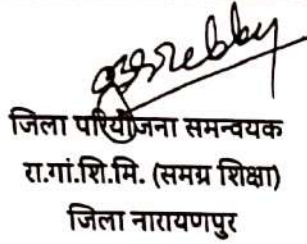 जिला परियोजना समन्वयक
रा.गां.शि.मि. (समग्र शिक्षा)
जिला नारायणपुर